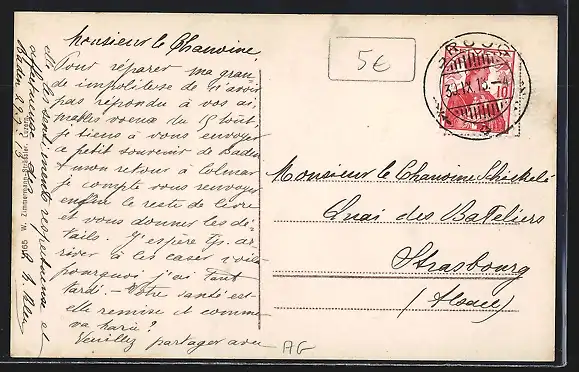 Monsieur le Chanoine
Pour réparer ma gran-
de impolitesse de n'avoir
pas répondu à vos ai-
mables voeux du 15 Août,
je tiens à vous envoyer
ce petit souvenir de Baden
mon retour à Colmar
je compte vous renvoyer
enfin le reste de livre
et vous donner les dé-
tails. J'espère
river à les caser voilà
pourquoi j'ai tant
tardé. — Votre santé est-
elle remise et comment
va
Veuillez partager avec
elle les sentiments respectueux et
affectueux de
Baden 29.9.13
W. Zimmermann-Strässler, Luzern
5€
30.IX.13.-4
10
Monsieur le Chanoine
Quai des Bateliers
Strasbourg
(Alsace)
AG